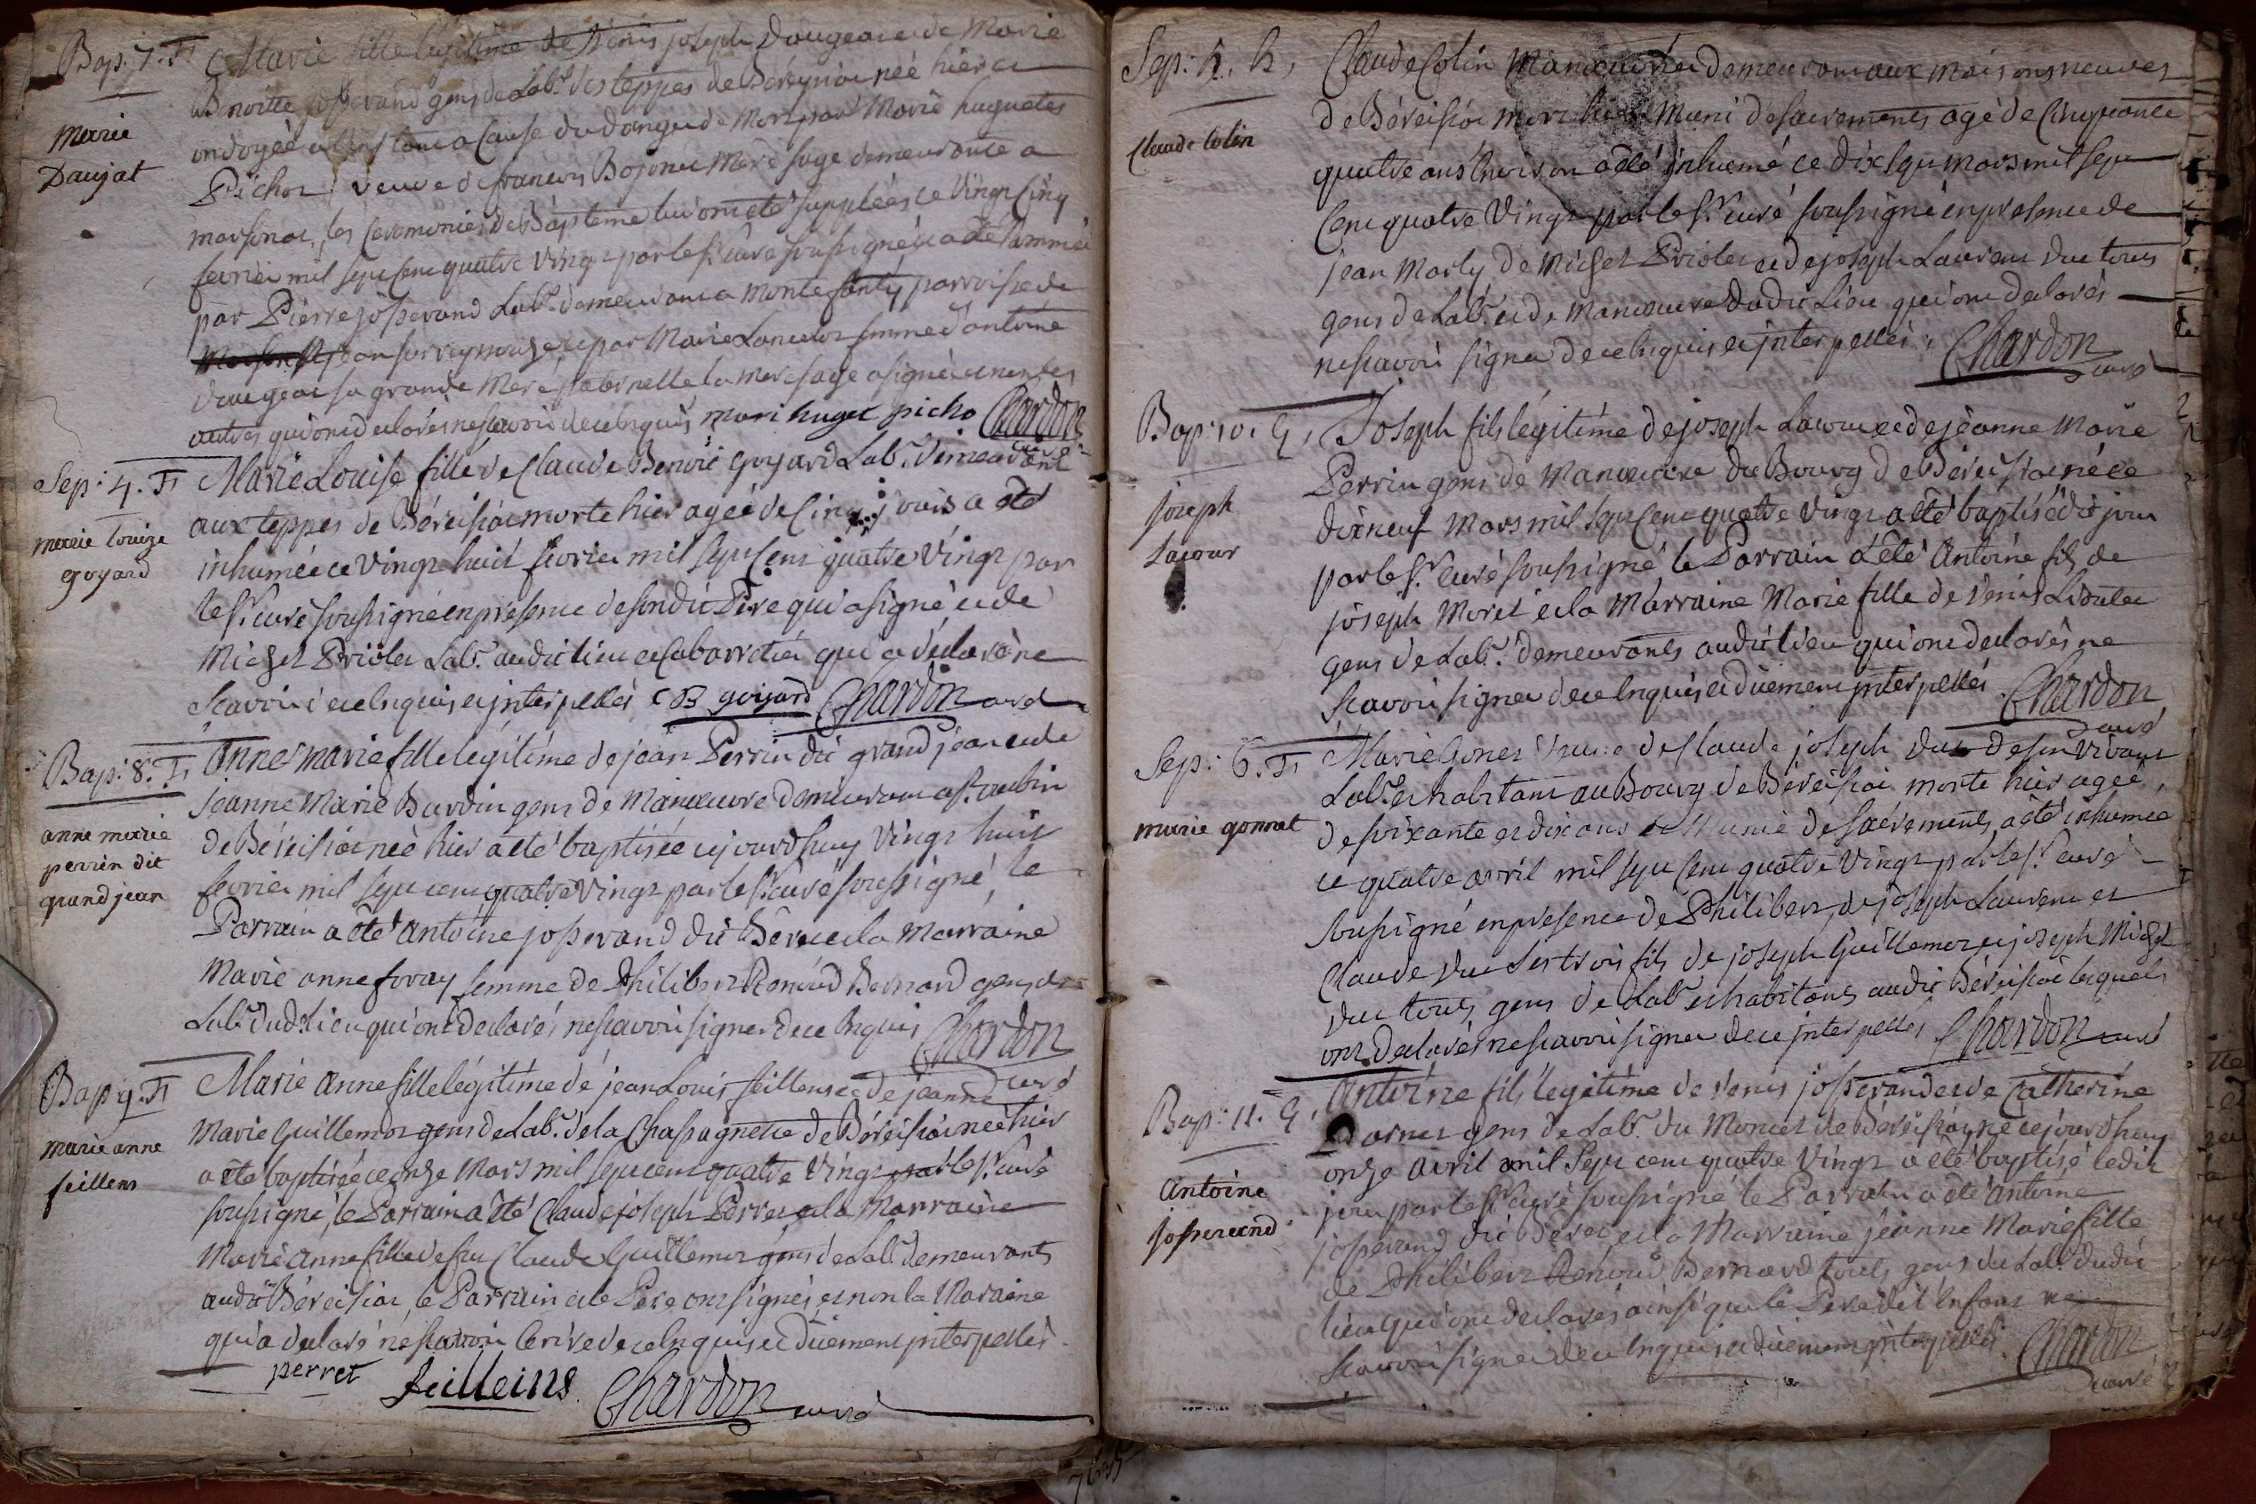 Bap: 7. F.
Marie
Daujat
Marie fille legitime de Denis joseph Daugeat et de Marie
Benoitte josserand gens de Lab.r des teppes de Béreyziat née hier et
ondoyée a l'instant a Cause du danger de Mort par Marie huguetes
Pichoz veuve de francois Bojonet Mere sage demeurante a
marsonat, les Ceremonies de Bapteme lui ont eté suppléées ce Vingt Cinq
fevrier mil sept Cent quatre Vingt par le s.r curé soussigné, et a eté nommée
par Pierre josserand Lab.r demeurant a Montefanty parroisse de
St jean sur reyssouze et par Marie Lancelot femme d'antoine
daugeat sa grande Mere paternelle la Mere sage a signé et non les
autres qui ont declarés ne sçavoir de ce Enquis mari huget picho Chardon
Sep: 4. F.
Marie Louise
goyard
Marie Louise fille de Claude Benoit Goyard Lab.r Demeurant
aux teppes de Béreisiat morte hier agée de Cinq jours a eté
inhumée ce Vingt huit fevrier mil sept Cent quatre Vingt par
le s.r curé soussigné en presence de son dit Pere qui a signé et de
Michel Prioler Lab.r audit lieu et Cabarretier qui a declaré ne
sçavoir de ce Enquis et jnterpellés C B goyard Chardon curé
Bap: 8. F.
anne marie
perrin dit
grand jean
Anne Marie fille legitime de jean Perrin dit grand jean et de
jeanne Marie Burdin gens de Manœuvre demeurant a St. aubin
de Béreisiat née hier a eté baptisée cejourd'huy Vingt huit
fevrier mil sept cent quatre Vingt par le s.r curé soussigné, le
Parrain a eté Antoine josserand dit Béret et la Marraine
Marie anne foray femme de Philibert Renoud Bernard gens de
Lab.r dud. lieu qui ont declarés ne sçavoir signer de ce Enquis Chardon
curé
Bap 9. F.
Marie anne
feillens
Marie Anne fille legitime de jean Louis feillens et de jeanne
Marie Guillemot gens de Lab.r de la Chassagnette de Béreisiat née hier
a eté baptisée ce onze Mars mil sept cent quatre Vingt par le s.r curé
soussigné, le Parrain a eté Claude joseph Perret et la Marraine
Marie Anne fille de feu Claude Guillemot gens de Lab.r demeurants
audit Béreisiat, le Parrain et le Pere ont signés, et non la Maraine
qui a declaré ne sçavoir Ecrire de ce Enquis et düement jnterpellés
perret feilleins Chardon curé
Sep: 5. h,
Claude Colin
Claude Colin Manœuvrier demeurant aux maisons neuves
de Béreisiat mort hier Muni des sacrements agé de Cinquante
quatre ans Environ a eté inhumé ce dix sept mars mil sept
Cent quatre Vingt par le s.r curé soussigné en presence de
jean Marly de Michel Prioler et de joseph Laurent Duc tous
gens de Lab.r et de Manœuvre dudit Lieu qui ont declarés
ne sçavoir signer de ce Enquis et jnterpellés. Chardon
curé
Bap: 10. G,
joseph
Lacour
Joseph fils légitime de joseph Lacour et de jeanne Marie
Perrin gens de Manœuvre du Bourg de Béreisiat né ce
dix neuf Mars mil sept Cent quatre Vingt a eté baptisé dit jour
par le s.r curé soussigné le Parrain a eté Antoine fils de
joseph Moret et la Marraine Marie fille de Denis
gens de Lab.r demeurants audit lieu qui ont declarés ne
sçavoir signer de ce Enquis et düement jnterpellés. Chardon
curé
Sep: 6. F.
marie gonnet
Marie Gonet Veuve de Claude joseph Duc de son vivant
Lab.r et habitant au Bourg de Béreisiat morte hier agée
de soixante et dix ans et Munie des sacrements a eté inhumée
ce quatre avril mil sept Cent quatre Vingt par le s.r curé
soussigné en presence de Philibert, de joseph Laurent et
Claude Duc Les trois fils de joseph Guillemot et joseph Michel
Duc tous gens de Lab.r et habitants audit Béreisiat lesquels
ont declarés ne sçavoir signer de ce jnterpellés Chardon curé
Bap: 11. G,
Antoine
josserand
Antoine fils legitime de Denis josserand et de Catherine
gens de Lab.r du Moncel de Béreisiat, né cejourd'huy
onze avril mil sept cent quatre Vingt a eté baptisé ledit
jour par le s.r curé soussigné le Parrain a eté Antoine
josserand dit Béret et la Marraine jeanne Marie fille
de Philibert Renoud Bernard tous gens de Lab.r dudit
lieu qui ont declarés ainsi que le Pere de l'Enfant ne
sçavoir signer de ce Enquis et düement jnterpellés. Chardon
curé